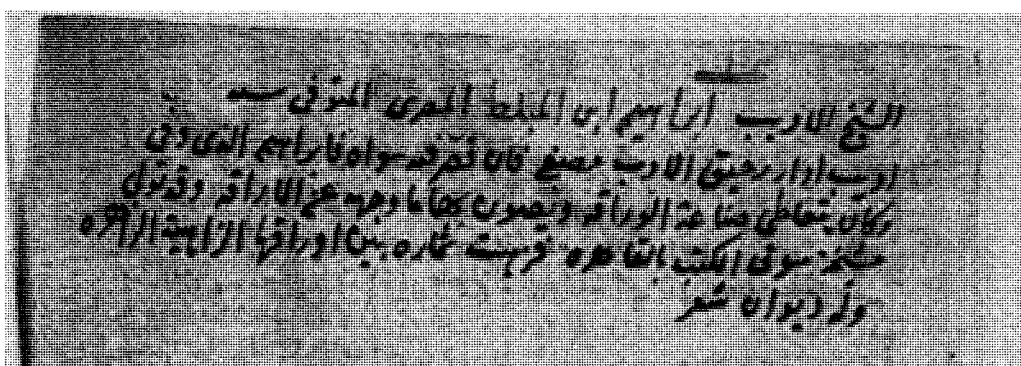 الشيخ الاديب ابراهيم ابن المبلط المصرى المتوفى سنه
اديب ادار رحيق الادب فان قصر فيه سواه فابراهيم الذى وفى
وكان يتعاطى صناعة الوراقه وتصون بها ماء وجهه عن الاراقه وقد تولى
مشيخة سوق الكتب بالقاهره فربحت تجارته بين اوراقها الزاهية الزاهره
وله ديوان شعر